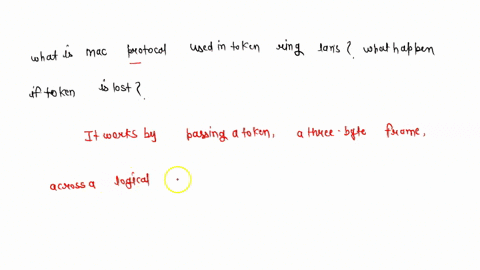 what is mac protocol used in token ring lans? what happen
if token is lost?
It works by passing a token, a three-byte frame,
across a logical